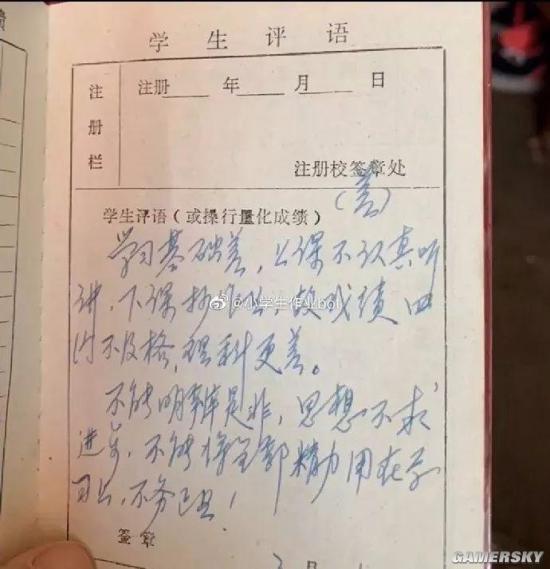 学生评语
注册栏
注册 年 月 日
注册校签章处
学生评语(或操行量化成绩)
(差)
学习基础差,上课不认真听
讲,下课抄作业,故成绩
均不及格,理科更差。
不能明辨是非,思想不求
进步,不能将全部精力用在学
习上,不务正业!
签章
月
@小学生作业bot
GAMERSKY